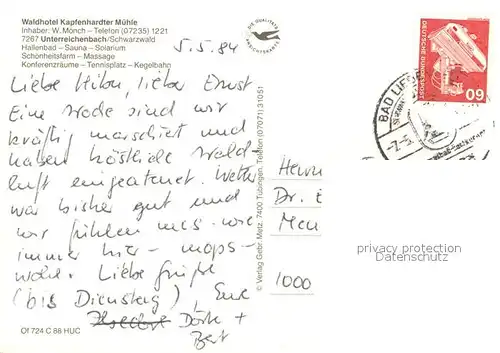 Waldhotel Kapfenhardter Mühle
Inhaber: W. Mönch – Telefon (07235) 1221
7267 Unterreichenbach/Schwarzwald
Hallenbad – Sauna – Solarium
Schönheitsfarm – Massage
Konferenzräume – Tennisplatz – Kegelbahn
DIE QUALITÄTS
5.5.84
Liebe , lieber Ernst
Eine Woche sind wir
kräftig marschiert und
haben köstliche Wald-
luft eingeatmet. Wetter
war bisher gut und
wir fühlen uns wie
immer hier – mops-
wohl. Liebe Grüße
(bis Dienstag), Eure
Dörte +
Bert
Of 724 C 88 HUC
© Verlag Gebr. Metz, 7400 Tübingen, Telefon (07071) 31051
DEUTSCHE BUNDESPOST
60
BAD LIEBE
-7.-5.
Herrn
Dr. E
1000
privacy protection
Datenschutz